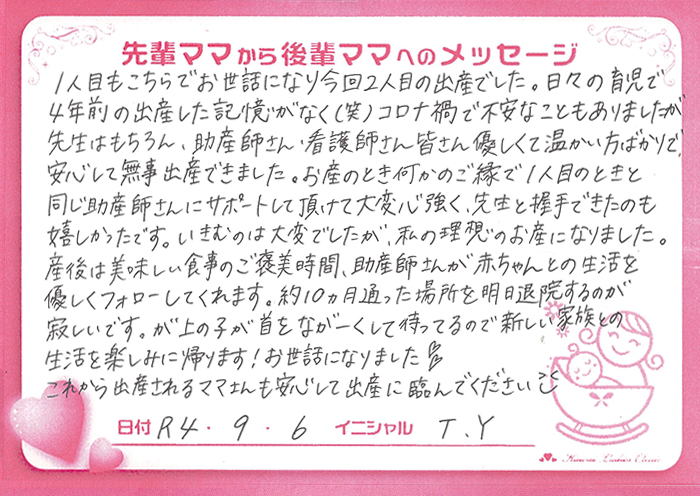 先輩ママから後輩ママへのメッセージ
1人目もこちらでお世話になり今回2人目の出産でした。日々の育児で
4年前の出産した記憶がなく(笑)コロナ禍で不安なこともありましたが
先生はもちろん、助産師さん・看護師さん皆さん優しくて温かい方ばかりで、
安心して無事出産できました。お産のとき何かのご縁で1人目のときと
同じ助産師さんにサポートして頂けて大変心強く、先生と握手できたのも
嬉しかったです。いきむのは大変でしたが、私の理想のお産になりました。
産後は美味しい食事のご褒美時間、助産師さんが赤ちゃんとの生活を
優しくフォローしてくれます。約10ヵ月通った場所を明日退院するのが
寂しいです。が上の子が首をなが〜くして待ってるので新しい家族との
生活を楽しみに帰ります!お世話になりました
これから出産されるママさんも安心して出産に臨んでください
日付 R4・9・6 イニシャル T.Y
Ladies Clinic